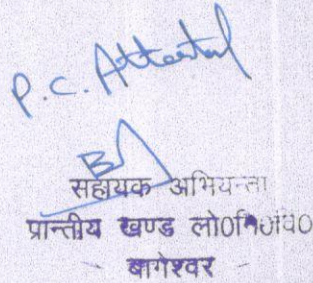 P.C. Attested
सहायक अभियन्ता
प्रान्तीय खण्ड लो०नि०वि०
बागेश्वर